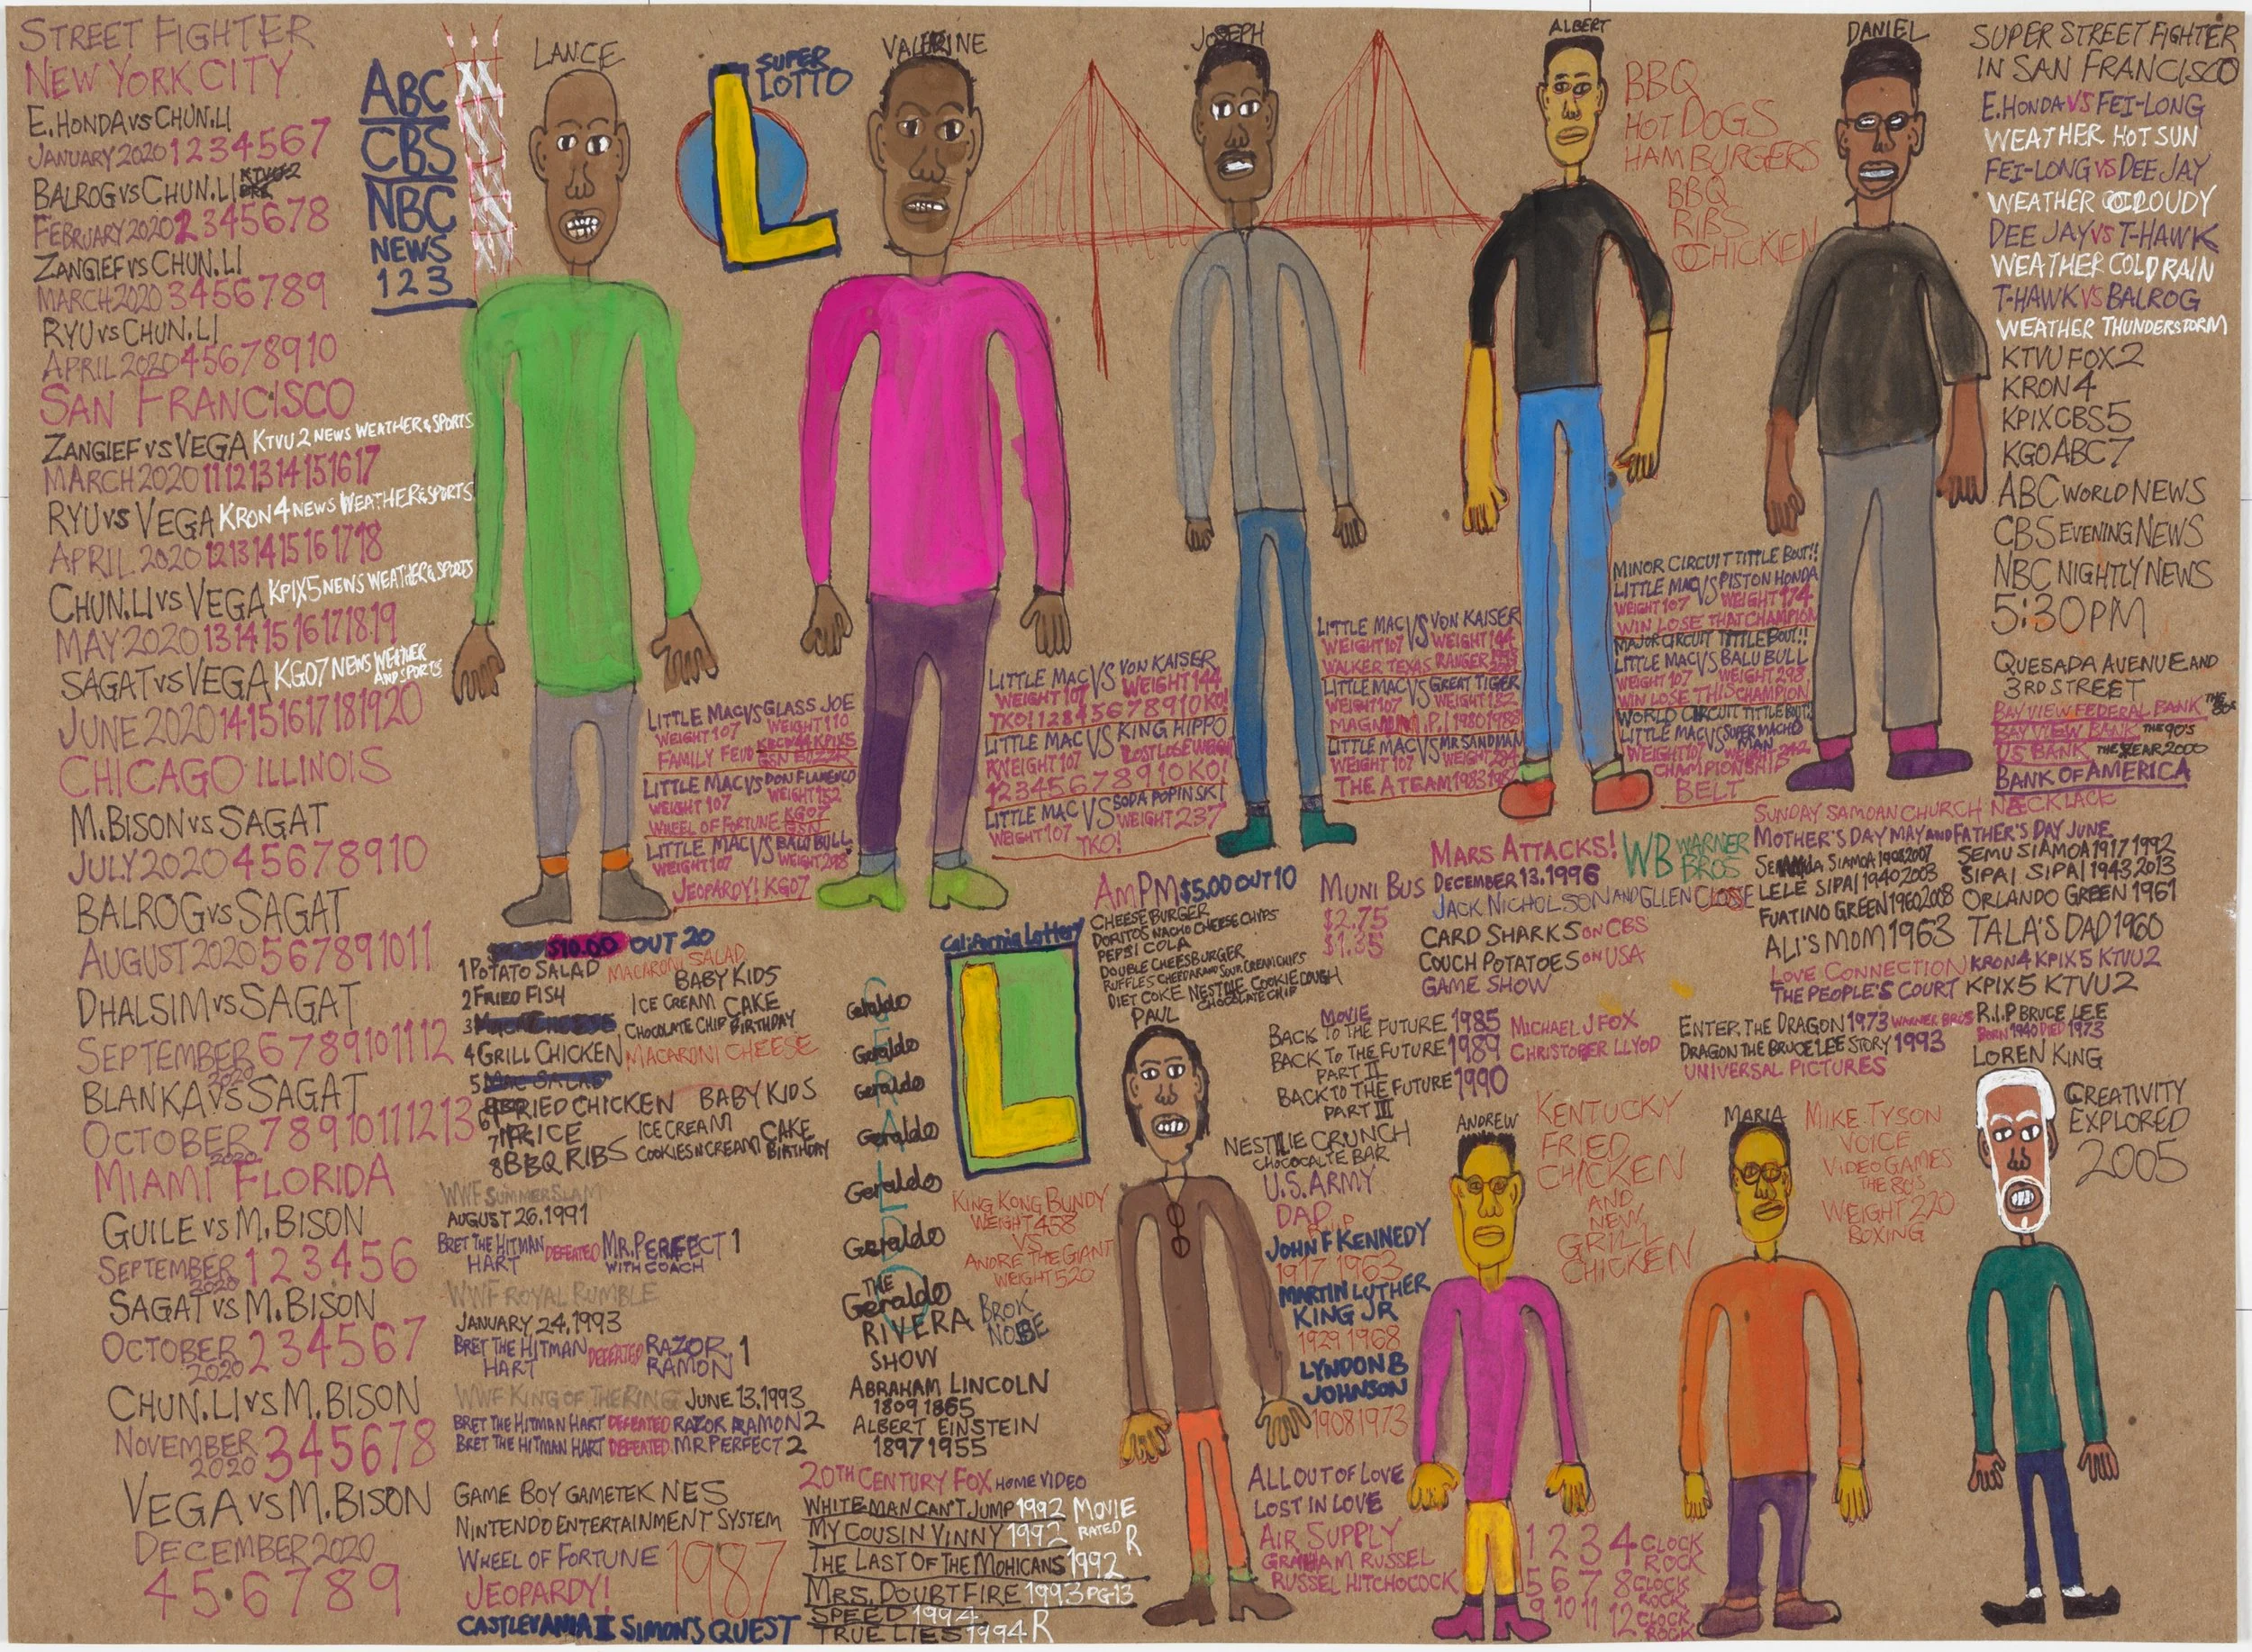 STREET FIGHTER
NEW YORK CITY
E. HONDA VS CHUN.LI
JANUARY 2020 1 2 3 4 5 6 7
BALROG VS CHUN.LI
FEBRUARY 2020 2 3 4 5 6 7 8
ZANGIEF VS CHUN.LI
MARCH 2020 3 4 5 6 7 8 9
RYU VS CHUN.LI
APRIL 2020 4 5 6 7 8 9 10
SAN FRANCISCO
ZANGIEF VS VEGA KTVU 2 NEWS WEATHER & SPORTS
MARCH 2020 11 12 13 14 15 16 17
RYU VS VEGA KRON 4 NEWS WEATHER & SPORTS
APRIL 2020 12 13 14 15 16 17 18
CHUN.LI VS VEGA KPIX 5 NEWS WEATHER & SPORTS
MAY 2020 13 14 15 16 17 18 19
SAGAT VS VEGA KGO 7 NEWS WEATHER
AND SPORTS
JUNE 2020 14 15 16 17 18 19 20
CHICAGO ILLINOIS
M. BISON VS SAGAT
JULY 2020 4 5 6 7 8 9 10
BALROG VS SAGAT
AUGUST 2020 5 6 7 8 9 10 11
DHALSIM VS SAGAT
SEPTEMBER 6 7 8 9 10 11 12
2020
BLANKA VS SAGAT
OCTOBER 7 8 9 10 11 12 13
2020
MIAMI FLORIDA
GUILE VS M. BISON
SEPTEMBER 1 2 3 4 5 6
2020
SAGAT VS M. BISON
OCTOBER 2 3 4 5 6 7
2020
CHUN.LI VS M. BISON
NOVEMBER 3 4 5 6 7 8
2020
VEGA VS M. BISON
DECEMBER 2020
4 5 6 7 8 9
ABC
CBS
NBC
NEWS
1 2 3
LANCE
SUPER
LOTTO
L
VALERINE
JOSEPH
ALBERT
BBQ
HOT DOGS
HAMBURGERS
BBQ
RIBS
CHICKEN
DANIEL
SUPER STREET FIGHTER
IN SAN FRANCISCO
E. HONDA VS FEI-LONG
WEATHER HOT SUN
FEI-LONG VS DEE JAY
WEATHER CLOUDY
DEE JAY VS T-HAWK
WEATHER COLD RAIN
T-HAWK VS BALROG
WEATHER THUNDERSTORM
KTVU FOX 2
KRON 4
KPIX CBS 5
KGO ABC 7
ABC WORLD NEWS
CBS EVENING NEWS
NBC NIGHTLY NEWS
5:30PM
QUESADA AVENUE AND
3RD STREET
BAY VIEW FEDERAL BANK THE 80'S
BAY VIEW BANK THE 90'S
US BANK THE YEAR 2000
BANK OF AMERICA
LITTLE MAC VS GLASS JOE
WEIGHT 107 WEIGHT 110
FAMILY FEUD
LITTLE MAC VS DON FLAMENCO
WEIGHT 107 WEIGHT 152
WHEEL OF FORTUNE KGO7
GSN
LITTLE MAC VS BALU BULL
WEIGHT 107 WEIGHT 298
JEOPARDY! KGO7
LITTLE MAC VS VON KAISER
WEIGHT 107 WEIGHT 144
TKO! 1 2 3 4 5 6 7 8 9 10 KO!
LITTLE MAC VS KING HIPPO
WEIGHT 107
1 2 3 4 5 6 7 8 9 10 KO!
LITTLE MAC VS SODA POPINSKI
WEIGHT 107 WEIGHT 237
TKO!
LITTLE MAC VS VON KAISER
WEIGHT 107 WEIGHT 144
WALKER TEXAS RANGER
LITTLE MAC VS GREAT TIGER
WEIGHT 107 WEIGHT 132
MAGNUM P.I. 1980 1988
LITTLE MAC VS MR SANDMAN
WEIGHT 107 WEIGHT 284
THE A TEAM 1983 1987
MINOR CIRCUIT TITTLE BOUT!!
LITTLE MAC VS PISTON HONDA
WEIGHT 107 WEIGHT 174
WIN LOSE THAT CHAMPION
MAJOR CIRCUIT TITTLE BOUT!!
LITTLE MAC VS BALU BULL
WEIGHT 107 WEIGHT 298
WIN LOSE THIS CHAMPION
WORLD CIRCUIT TITTLE BOUT!
LITTLE MAC VS SUPER MACHO
MAN
WEIGHT 107 WEIGHT 242
CHAMPIONSHIP
BELT
$10.00 OUT 20
1 POTATO SALAD MACARONI SALAD
BABY KIDS
2 FRIED FISH ICE CREAM CAKE
3 CHOCOLATE CHIP BIRTHDAY
4 GRILL CHICKEN MACARONI CHEESE
5
6 FRIED CHICKEN BABY KIDS
7 RICE ICE CREAM CAKE
8 BBQ RIBS COOKIES N CREAM BIRTHDAY
WWF SUMMERSLAM
AUGUST 26, 1991
BRET THE HITMAN DEFEATED MR. PERFECT 1
HART WITH COACH
WWF ROYAL RUMBLE
JANUARY 24, 1993
BRET THE HITMAN DEFEATED RAZOR 1
HART RAMON
WWF KING OF THE RING JUNE 13, 1993
BRET THE HITMAN HART DEFEATED RAZOR RAMON 2
BRET THE HITMAN HART DEFEATED MR PERFECT 2
GAME BOY GAMETEK NES
NINTENDO ENTERTAINMENT SYSTEM
WHEEL OF FORTUNE 1987
JEOPARDY!
CASTLEVANIA II SIMON'S QUEST
GERALDO
Geraldo
Geraldo
Geraldo
Geraldo
Geraldo
Geraldo
THE
Geraldo
RIVERA
SHOW
BROK
NOBE
ABRAHAM LINCOLN
1809 1865
ALBERT EINSTEIN
1897 1955
20TH CENTURY FOX HOME VIDEO
WHITE MAN CAN'T JUMP 1992 MOVIE
MY COUSIN VINNY 1992 RATED R
THE LAST OF THE MOHICANS 1992
MRS. DOUBTFIRE 1993 PG-13
SPEED 1994
TRUE LIES 1994 R
California Lottery
L
KING KONG BUNDY
WEIGHT 458
VS
ANDRE THE GIANT
WEIGHT 520
AmPM $5.00 OUT 10
CHEESE BURGER
DORITOS NACHO CHEESE CHIPS
PEPSI COLA
DOUBLE CHEESBURGER
RUFFLES CHEDDAR AND SOUR CREAM CHIPS
DIET COKE NESTLIE COOKIE DOUGH
CHOCOLATE CHIP
PAUL
MUNI BUS
$2.75
$1.35
MARS ATTACKS!
DECEMBER 13, 1996
JACK NICHOLSON AND GLLEN CLOSE
WB WARNER
BROS
CARD SHARKS ON CBS
COUCH POTATOES ON USA
GAME SHOW
MOVIE
BACK TO THE FUTURE 1985
BACK TO THE FUTURE 1989
PART II
BACK TO THE FUTURE 1990
PART III
MICHAEL J FOX
CHRISTOPHER LLYOD
NESTLIE CRUNCH
CHOCOCALTE BAR
U.S. ARMY
DAD
R.I.P
JOHN F KENNEDY
1917 1963
MARTIN LUTHER
KING JR
1929 1968
LYNDON B
JOHNSON
1908 1973
ALL OUT OF LOVE
LOST IN LOVE
AIR SUPPLY
GRAHAM RUSSEL
RUSSEL HITCHOCOCK
SUNDAY SAMOAN CHURCH NECKLACE
MOTHER'S DAY MAY AND FATHER'S DAY JUNE
SEMU SIAMOA 1917 1992
LELE SIPAI 1940 2003 SIPAI SIPAI 1943 2013
FUATINO GREEN 1960 2008 ORLANDO GREEN 1961
ALI'S MOM 1963 TALA'S DAD 1960
LOVE CONNECTION KRON 4 KPIX 5 KTVU 2
THE PEOPLE'S COURT KPIX 5 KTVU 2
ENTER THE DRAGON 1973 WARNER BROS
DRAGON THE BRUCE LEE STORY 1993
UNIVERSAL PICTURES
R.I.P BRUCE LEE
BORN 1940 DIED 1973
LOREN KING
CREATIVITY
EXPLORED
2005
ANDREW
KENTUCKY
FRIED
CHICKEN
AND
NEW
GRILL
CHICKEN
MARIA
MIKE TYSON
VOICE
VIDEO GAMES
THE 80'S
WEIGHT 220
BOXING
1 2 3 4 CLOCK
ROCK
5 6 7 8 CLOCK
ROCK
9 10 11 12 CLOCK
ROCK